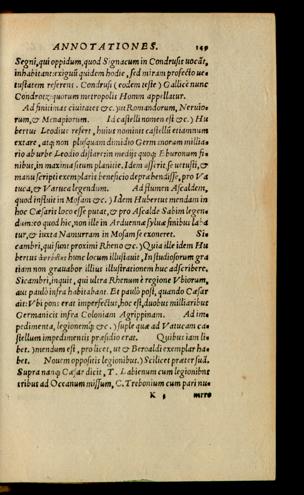 ANNOTATIONES. 149
Segni, qui oppidum, quod Signacum in Condrusis uocāt,
inhabitant: exiguū quidem hodie, sed miram profecto ue-
tustatem referens. Condrusi (eodem teste) Gallicè nunc
Condrotz: quorum metropolis Homn appellatur.
Ad finitimas ciuitates &c. ) ut Romandorum, Neruio-
rum, & Menapiorum. Id castelli nomen est &c. ) Hu
bertus Leodius refert, huius nominis castellū etiamnum
extare, atq; non plusquam dimidio Germanorum millia-
rio ab urbe Leodio distare: in medijs quoq; Eburonum fi-
nibus, in maxima situm planicie. Idem asserit se uetusti, &
manuscripti exemplaris beneficio deprehendisse, pro Va
tuca, & Varuca legendum. Ad flumen Ascaldem,
quod influit in Mosam &c. ) Idem Hubertus mendam in
hoc Cæsaris loco esse putat, & pro Ascalde Sabim legen
dum: eo quod hic, non ille in Arduennæ syluæ finibus laba
tur, & iuxta Namurram in Mosam se exoneret. Si-
cambri, qui sunt proximi Rheno &c. ) Quia ille idem Hu
bertus hunc locum illustauit, In studiosorum gra
tiam non grauabor illius illustrationem huc adscribere.
Sicambri, inquit, qui ultra Rhenum è regione Ubiorum,
aut paulò infra habitabant. Et paulò post, quando Cæsar
ait: Vbi pons erat imperfectus, hoc est, duobus milliaribus
Germanicis infra Coloniam Agrippinam. Ad im-
pedimenta, legionemq; &c. ) suple quæ ad Vatucam ca-
stellum impedimentis præsidio erat. Quibus iam li-
bet. ) mendum est, pro licet, ut & Beroaldi exemplar ha-
bet. Nouem oppositis legionibus. ) Scilicet præter suā.
Supra nanq; Cæsar dicit, T. Labienum cum legionibus
tribus ad Oceanum missum, C. Trebonium cum pari nu-
K 5 mero